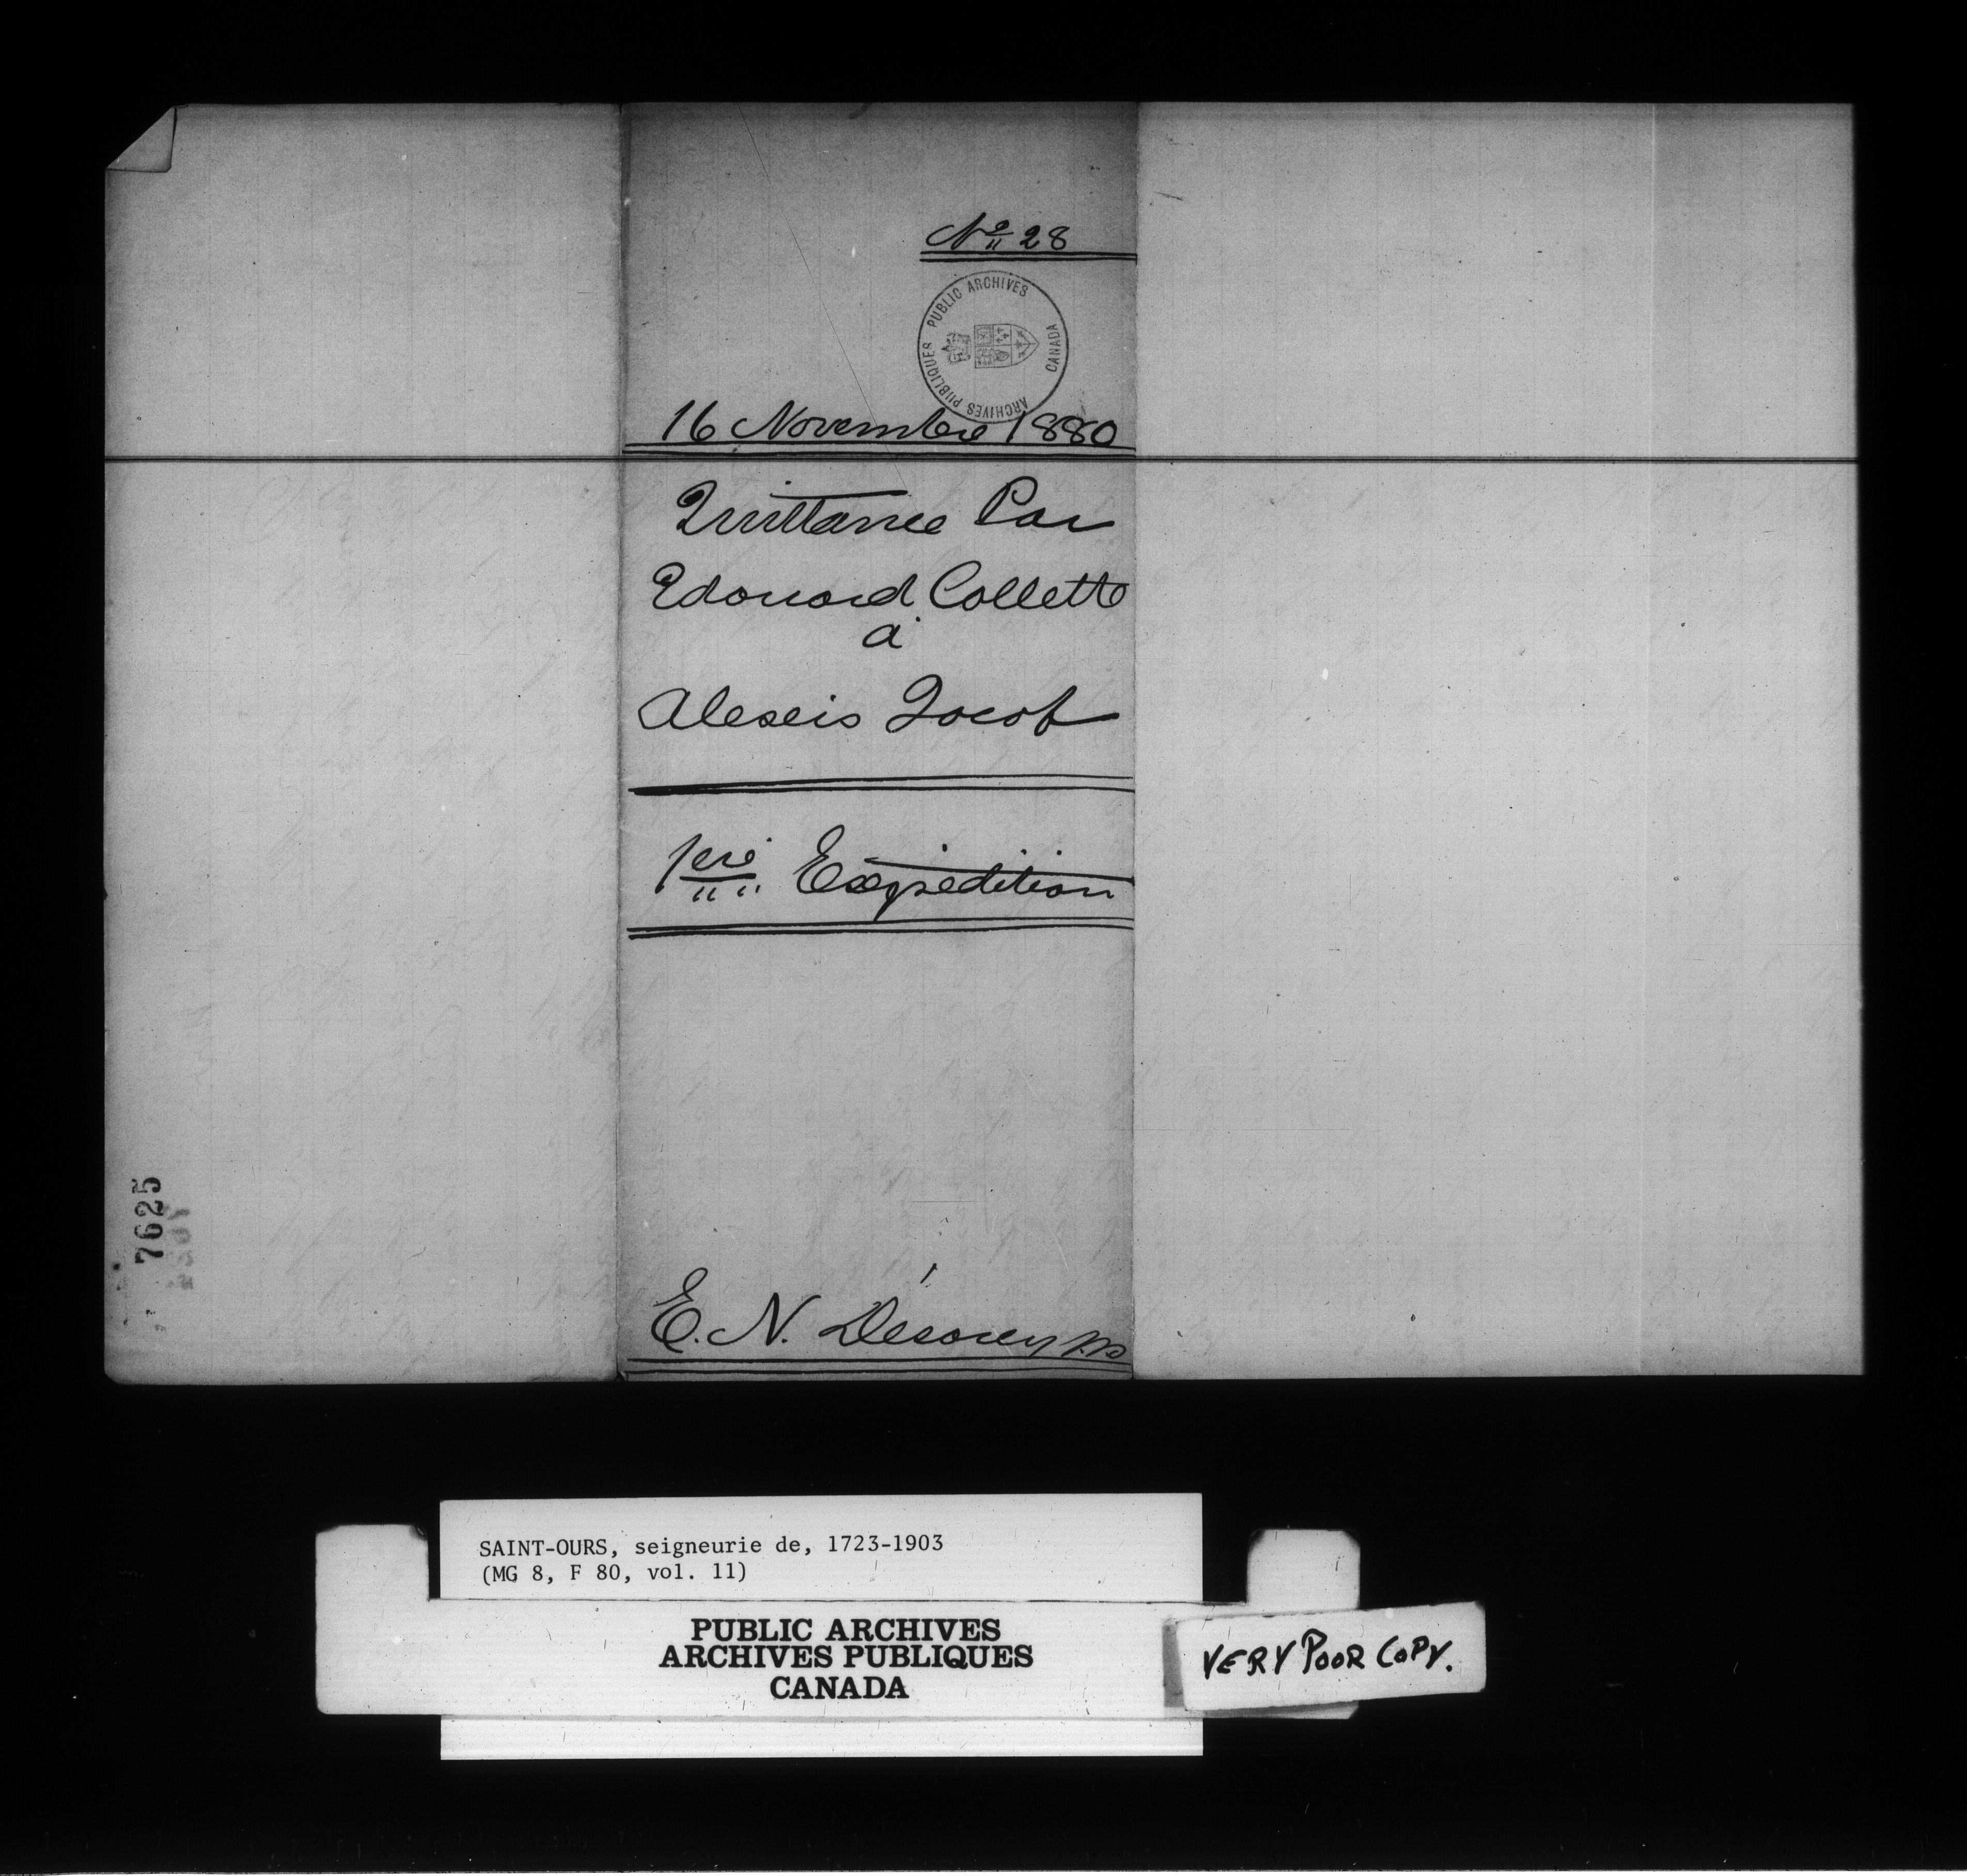 No 28
PUBLIC ARCHIVES
ARCHIVES PUBLIQUES
CANADA
16 Novembre 1880
Quittance Par
Edouard Collette
à
Alexis Jacob
1ere Expédition
7625
E. N. Désorcy N.P.
SAINT-OURS, seigneurie de, 1723-1903
(MG 8, F 80, vol. 11)
PUBLIC ARCHIVES
ARCHIVES PUBLIQUES
CANADA
VERY POOR COPY.